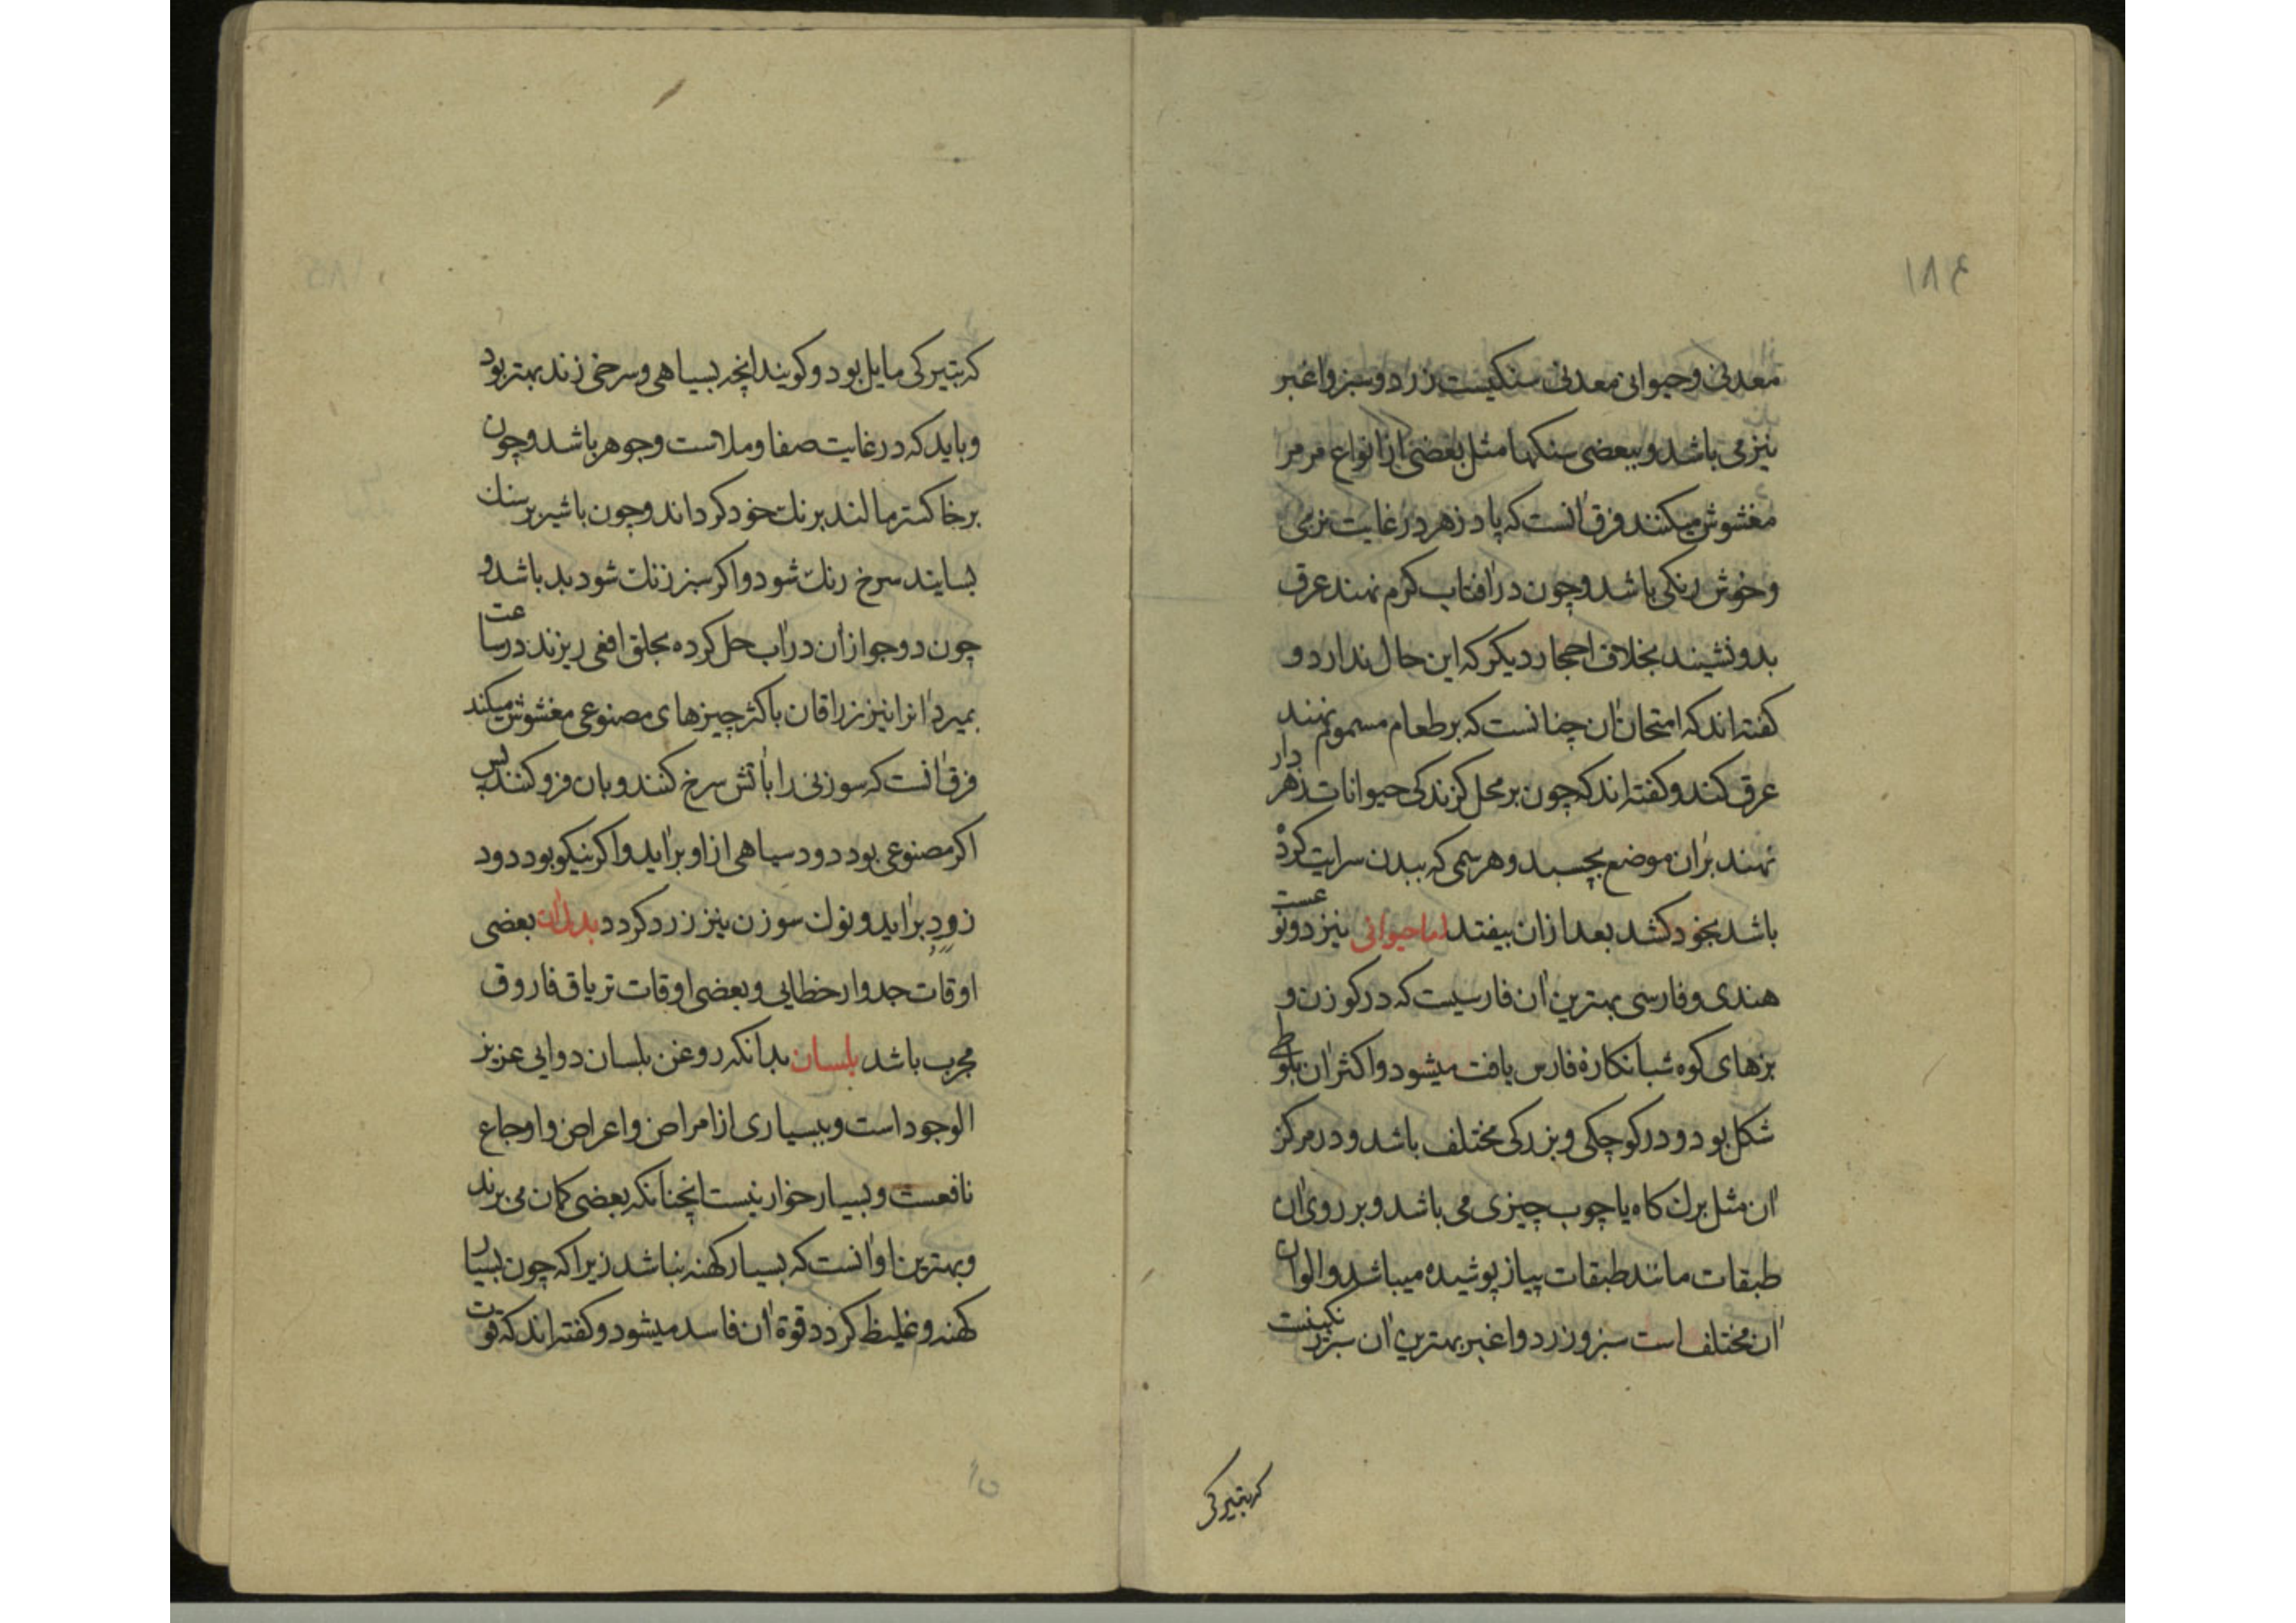 ۱۸۴
معدنی وحیوانی معدنی سنکیست زرد وسبز واغبر
نیز می باشد وببعضی سنکها مثل بعضی از انواع مرمر
مغشوش میکنند فرق آنست که پادزهر در غایت نرمی
وخوش رنکی باشد وچون در آفتاب کرم نهند عرق
بدو نشیند بخلاف احجار دیکر که این حال ندارد و
کفته اند که امتحان آن چنانست که بر طعام مسموم نهند
عرق کند وکفته اند که چون بر محل کزندکی حیوانات زهردار
نهند بران موضع بچسبد وهر سمی که ببدن سرایت کرده
باشد بخود کشد بعد ازان بیفتد اما حیوانی نیز دو نوعست
هندی وفارسی بهترین آن فارسیست که در کوزن و
بزهای کوه شبانکاره فارس یافت میشود واکثر آن بلوطی
شکل بود ودر کوچکی وبزرکی مختلف باشد ودر مرکز
آن مثل برك کاه یا چوب چیزی می باشد وبر روی آن
طبقات مانند طبقات پیاز پوشیده میباشد والوان
آن مختلف است سبز وزرد واغبر بهترین آن سبز رنکیست
که بتیرکی
که بتیرکی مایل بود وکویند انچه بسیاهی وسرخی زند بهتر بود
وباید که در غایت صفا وملاست وجوهر باشد وچون
بر خاکستر مالند برنك خود کرداند وچون با شیر بر سنك
بسایند سرخ رنك شود واکر سبز رنك شود بد باشد و
چون دو جو ازان در آب حل کرده بحلق افعی ریزند در ساعت
بمیرد آنرا نیز زراقان باکثر چیزهای مصنوعی مغشوش میکند
فرق آنست که سوزنی را بآتش سرخ کنند وبان فرو کنند پس
اکر مصنوعی بود دود سیاهی از او برآید واکر نیکو بود دود
زرد برآید ونوك سوزن نیز زرد کردد بدل آن بعضی
اوقات جدوار خطایی وبعضی اوقات تریاق فاروق
مجرب باشد بلسان بدانکه روغن بلسان دوایی عزیز
الوجود است وببسیاری از امراض واعراض واوجاع
نافعست وبسیار خوار نیست انچنانکه بعضی کمان می برند
وبهترین او آنست که بسیار کهنه نباشد زیرا که چون بسیار
کهنه وغلیظ کردد قوة آن فاسد میشود وکفته اند که قوت